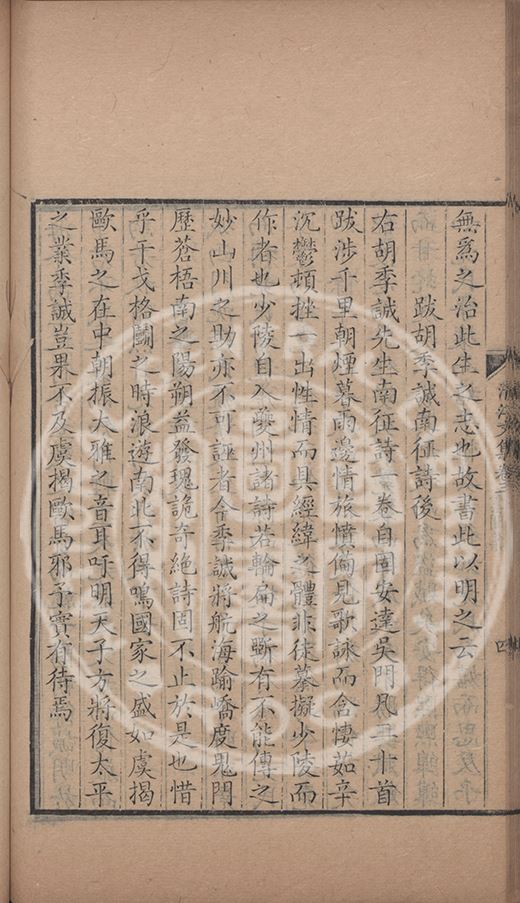 無爲之治此生之志也故書此以明之云
跋胡季誠南征詩後
右胡季誠先生南征詩一卷自固安達吳門凡五十首
跋涉千里朝煙暮雨邊情旅憤備見歌詠而含悽茹辛
沉鬱頓挫一出性情而具經緯之體非徒摹擬少陵而
作者也少陵自入夔州諸詩若輪扁之斲有不能傳之
妙山川之助亦不可誣者今季誠將航海踰嶠度鬼門
歷蒼梧南之陽朔益發瑰詭奇絕詩固不止於是也惜
乎干戈格鬭之時浪遊南北不得鳴國家之盛如虞揭
歐馬之在中朝振大雅之音耳吁明天子方將復太平
之業季誠豈果不及虞揭歐馬邪予實有待焉